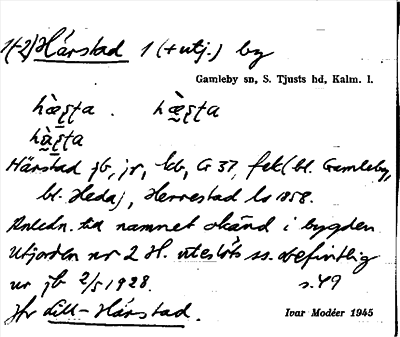 1(-2) Hårstad 1 (+ utj.) by
Gamleby sn, S. Tjusts hd, Kalm. l.
Hårstad jb, jr, kb, Gr 37, fsk (bl. Gamleby,
bl. Heda), Herrestad ls 1858.
Anledn. till namnet okänd i bygden
Utjorden nr 2 H. uteslöts ss. obefintlig
ur jb 2/5 1928. s. 49
Jfr Lill-Hårstad.
Ivar Modéer 1945